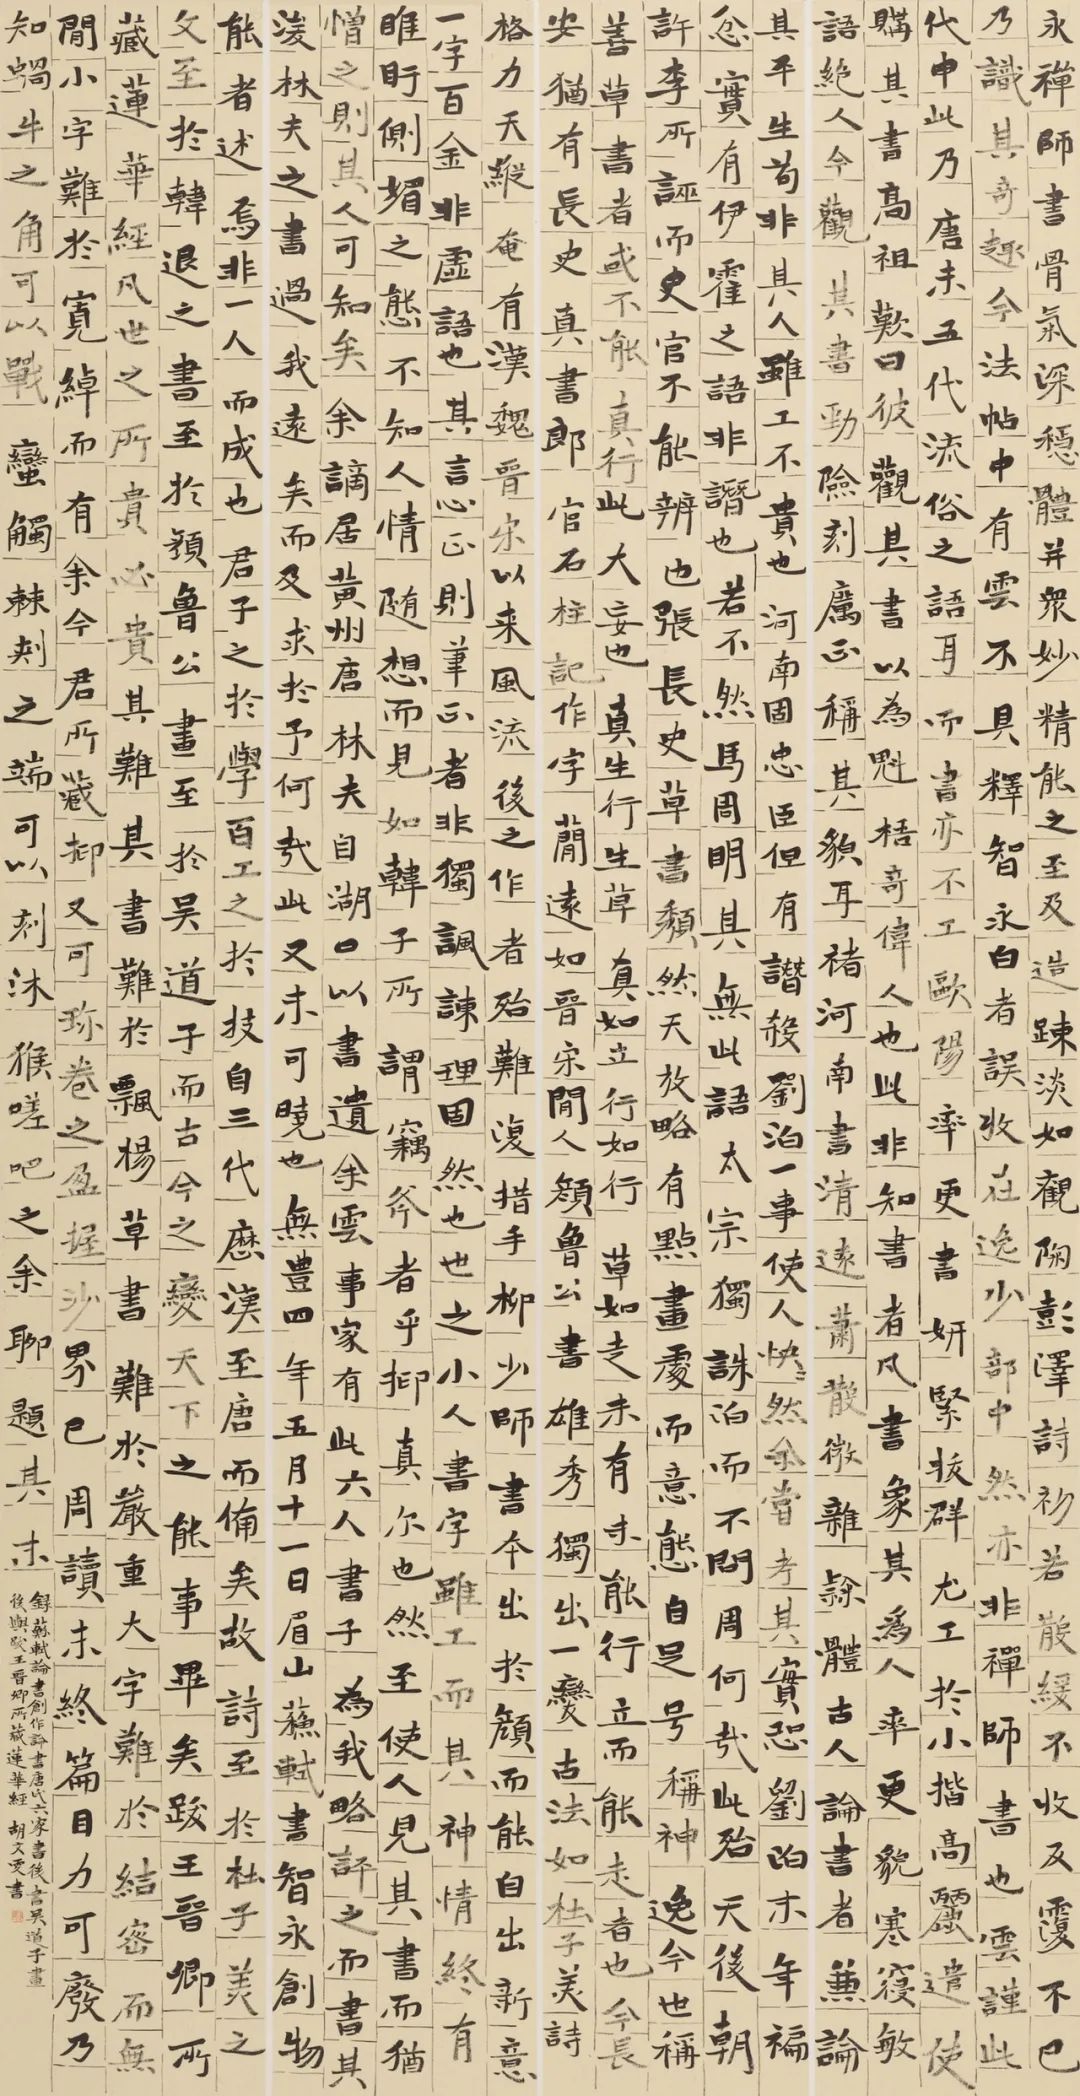 永禪師書骨氣深穩體并衆妙精能之至及造踈淡如觀陶彭澤詩初若散緩不收反覆不已
乃識其奇趣今法帖中有雲不具釋智永白者誤收在逸少部中然亦非禪師書也雲謹此
代申此乃唐末五代流俗之語耳而書亦不工歐陽率更書妍緊拔群尤工於小揩高麗遣使
購其書高祖歎曰彼觀其書以為魁梧奇偉人也此非知書者凡書象其爲人率更貌寒寝敏
語絶人今觀其書勁險刻厲正稱其貌耳禇河南書清遠蕭散微雜隸體古人論書者兼論
其平生苟非其人雖工不貴也河南固忠臣但有譖殺劉泊一事使人怏々然余嘗考其實恐劉泊末年褊
忿實有伊霍之語非譖也若不然馬周明其無此語太宗獨誅泊而不問周何哉此殆天後朝
許李所誣而史官不能辨也張長史草書頹然天放略有點畫處而意態自足号稱神逸今也稱
善草書者或不能真行此大妄也真生行生草真如立行如行草如走未有未能行立而能走者也今長
安猶有長史真書郎官石柱記作字蕳遠如晋宋間人顔魯公書雄秀獨出一變古法如杜子美詩
格力天縱奄有漢魏晋宋以来風流後之作者殆難復措手柳少師書夲出於顔而能自出新意
一字百金非虚語也其言心正則筆正者非獨諷諫理固然也世之小人書字雖工而其神情終有
睢盱側媚之態不知人情随想而見如韓子所謂竊斧者乎抑真尔也然至使人見其書而猶
憎之則其人可知矣余謫居黄州唐林夫自湖口以書遺余雲事家有此六人書子為我略評之而書其
後林夫之書過我遠矣而反求於予何哉此又未可曉也無豊四年五月十一日眉山蘓軾書智永創物
能者述焉非一人而成也君子之於學百工之於技自三代歴漢至唐而俻矣故詩至於杜子美之
文至於韓退之書至於顔魯公畫至於吴道子而古今之變天下之能事畢矣跋王晋卿所
藏蓮華經凡世之所貴必貴其難其書難於飄楊草書難於嚴重大字難於結密而無
間小字難於寛綽而有余今君所藏抑又可珎卷之盈握沙界已周讀未終篇目力可廢乃
知蝸牛之角可以戰蠻觸棘刺之端可以刻沐猴嗟吧之余聊題其末
録蘇軾論書創作評書唐氏六家書後書吴道子畫
後與跋王晋卿所藏蓮華經 胡文雯書